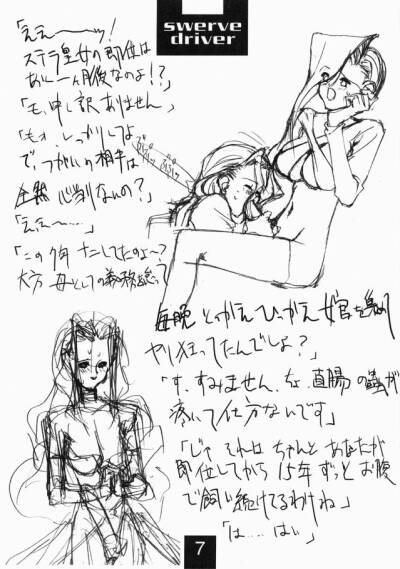 swerve
driver
「ええーーッ!
ステラ皇女の即位は
あと一ヶ月後なのよ!?」
「も、申し訳ありません」
「もォ、しっかりしてよ
で、つがいの相手は
全然 心当りないの?」
「ええ〜……」
「この7年 ナニしてたのよ〜?
大方 母としての義務を怠って
毎晩 とっかえひっかえ女官を集め
ヤリ狂ってたんでしょ?」
「す、すみません、ちょ、直腸の蟲が
疼いて仕方ないです」
「じゃ それは ちゃんと あなたが
即位してから 15年 ずっと お腹
で飼い続けてるわけね」
「は……はい」
7